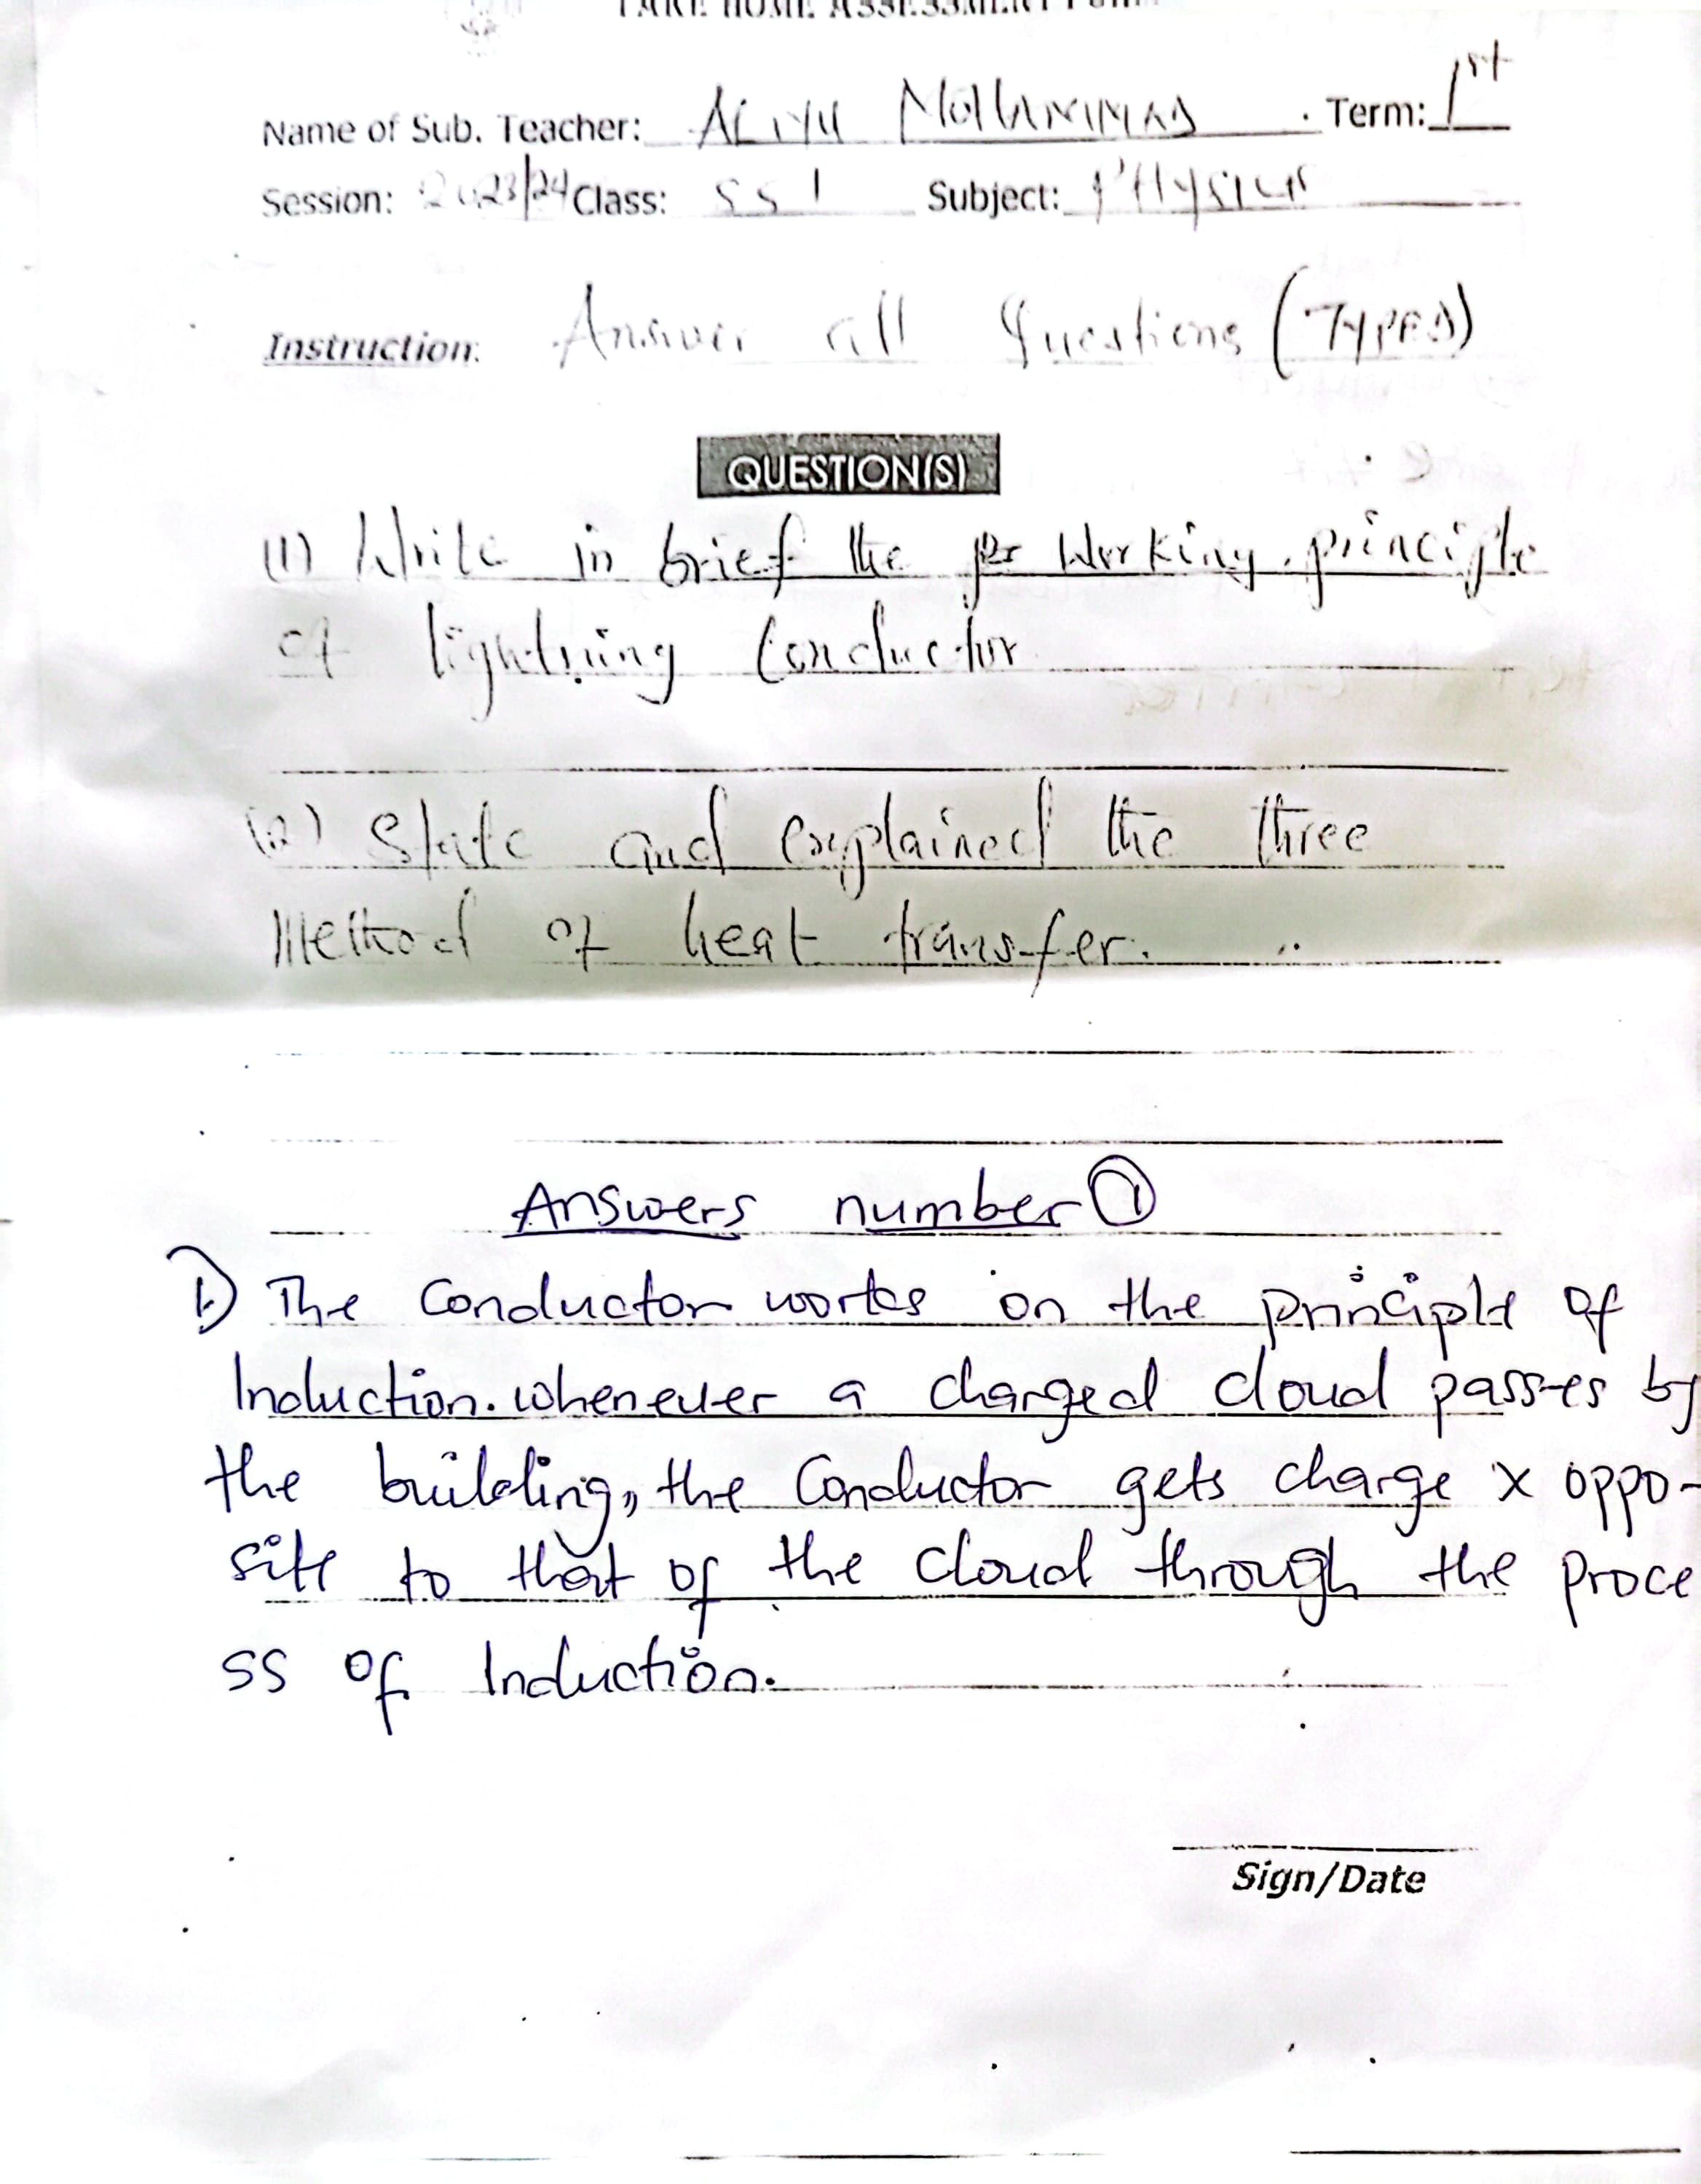 TAKE HOME ASSESSMENT FORM
Name of Sub. Teacher: ALIYU MOHAMMAD Term: 1st
Session: 2023/24 Class: SS 1 Subject: PHYSICS
Instruction: Answer all Questions (TYPED)
QUESTION(S)
(1) Write in brief the working principle
of lightning Conductor
(2) State and explained the three
Method of heat transfer.
Answers number ①
1.) The Conductor works on the principle of
Induction. whenever a charged cloud passes by
the building, the Conductor gets charge x oppo-
site to that of the cloud through the proce
ss of Induction.
Sign/Date